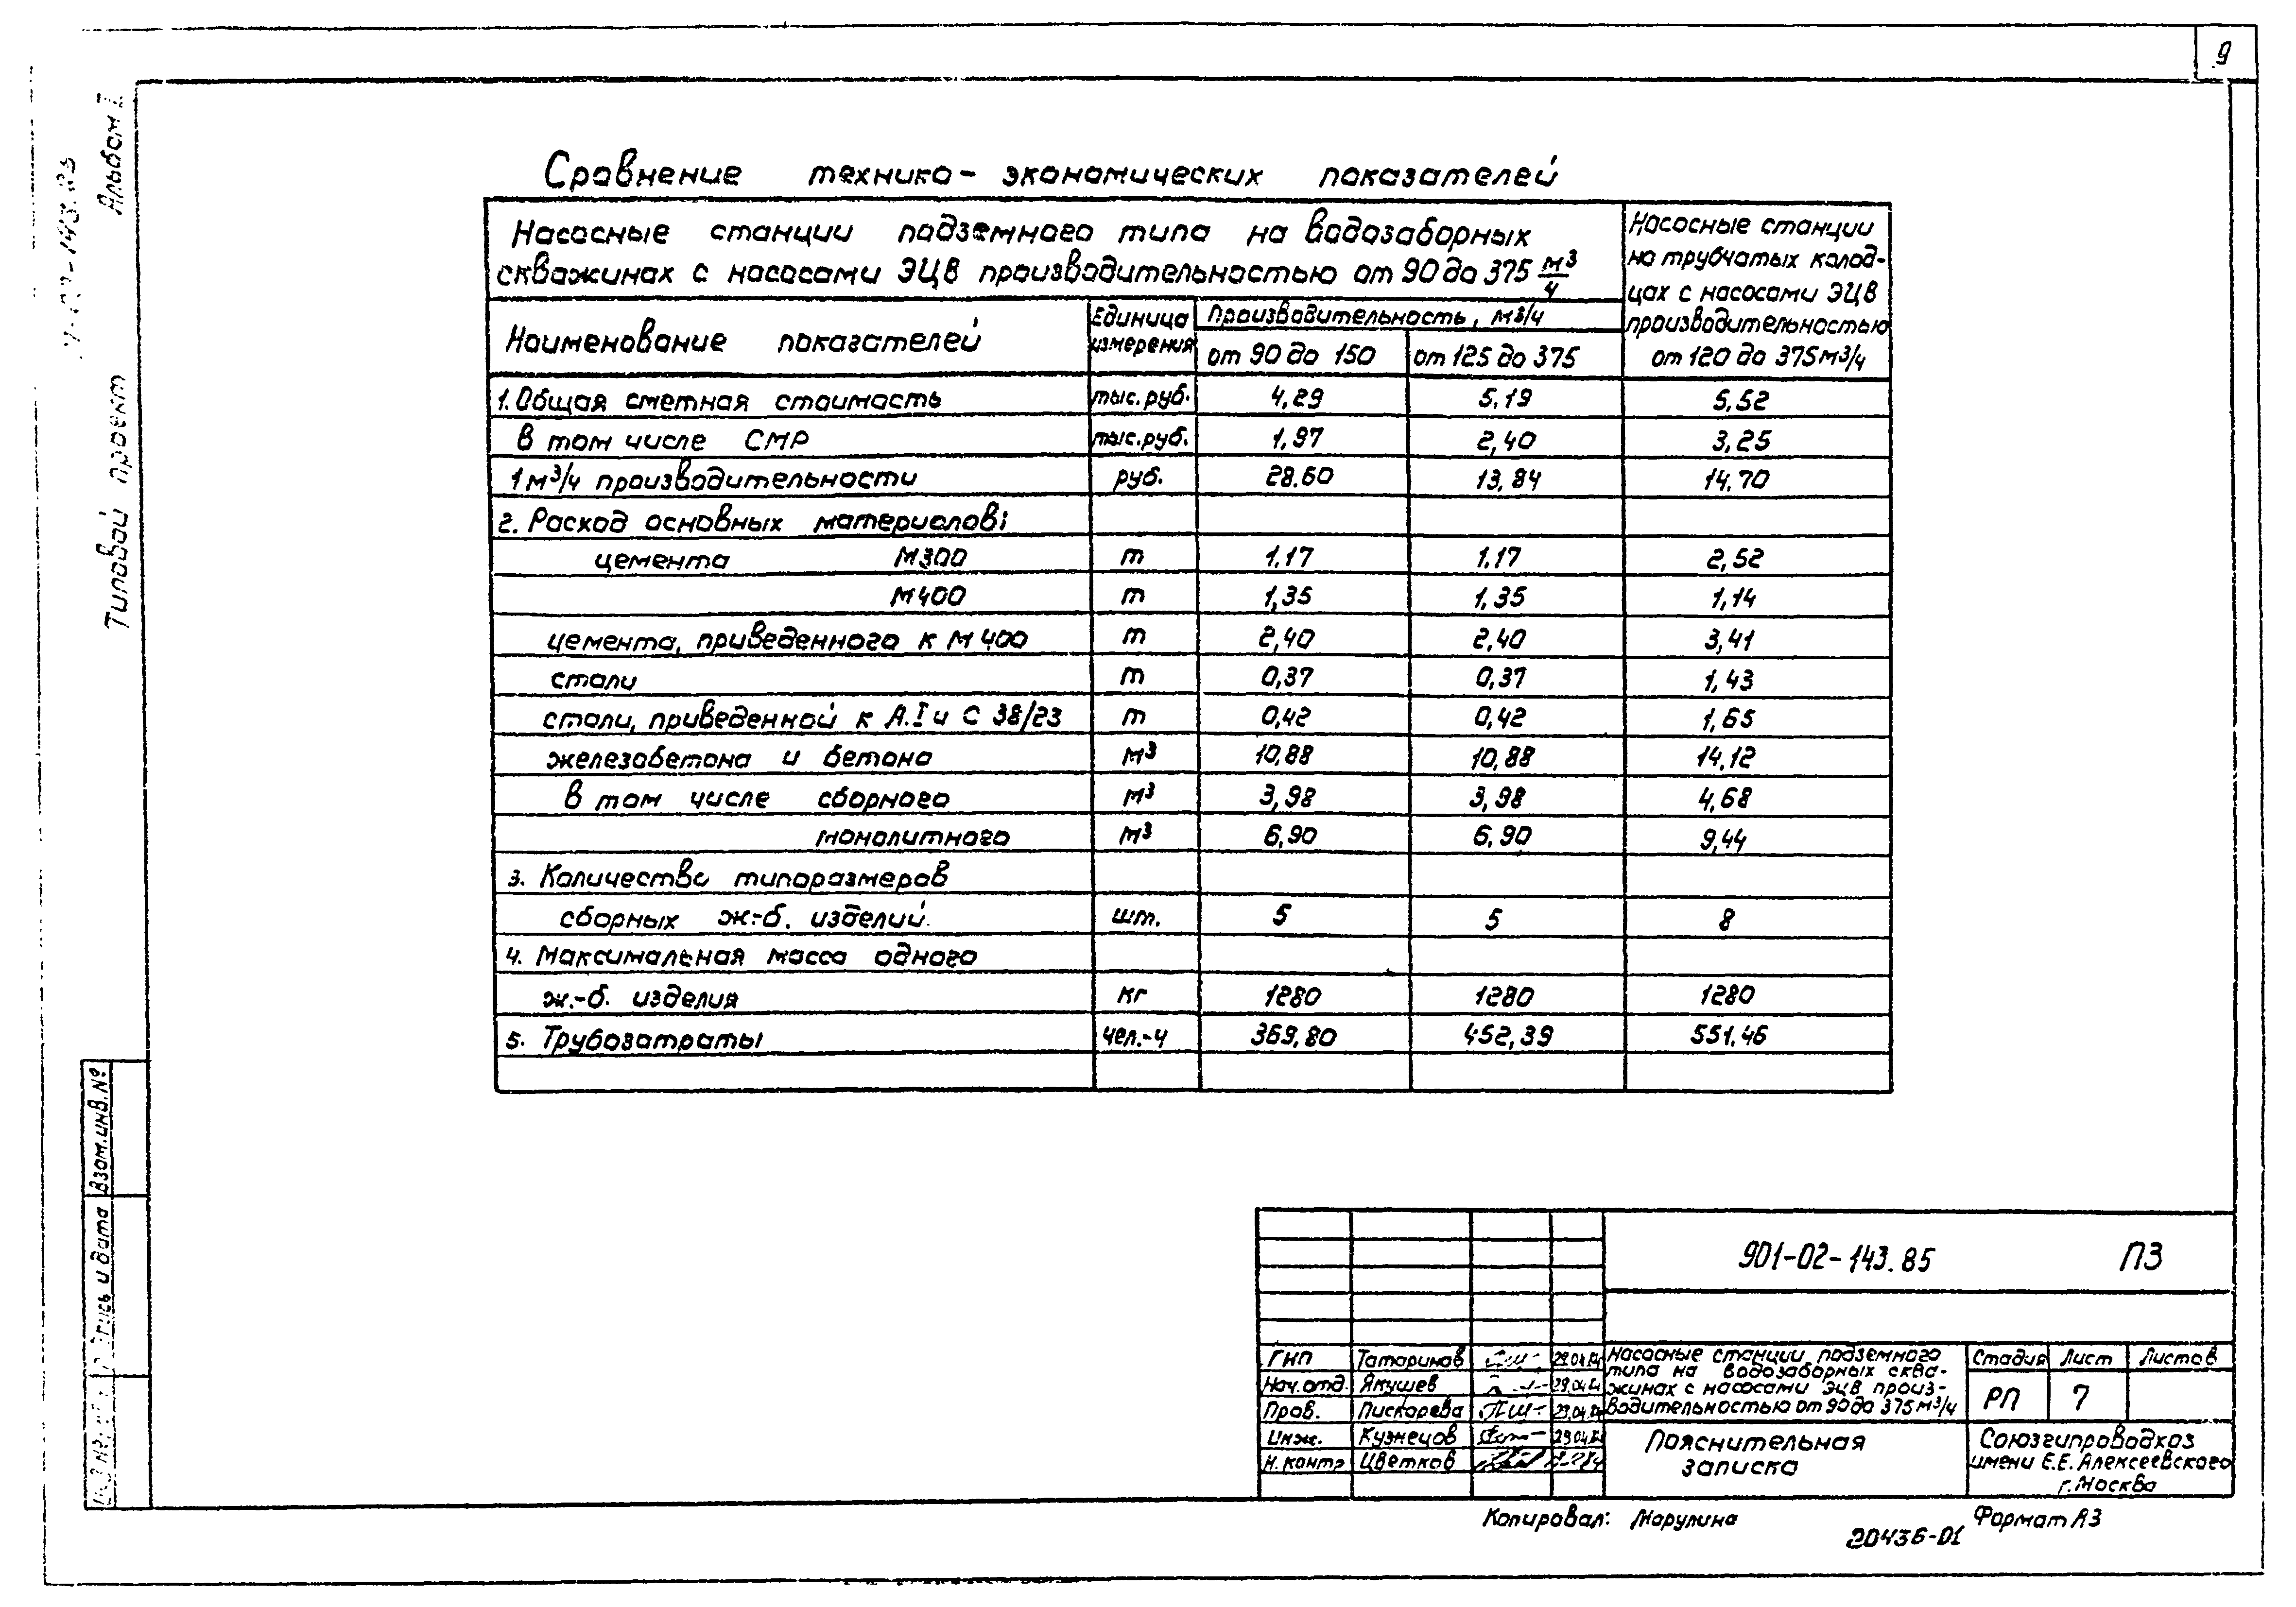 9
Альбом I
Типовой проект
Сравнение технико-экономических показателей
Насосные станции подземного типа на водозаборных
скважинах с насосами ЭЦВ производительностью от 90 до 375 м3/ч
Насосные станции
на трубчатых колод-
цах с насосами ЭЦВ
производительностью
от 120 до 375 м3/ч
Наименование показателей
Единица
измерения
Производительность, м3/ч
от 90 до 150
от 125 до 375
1. Общая сметная стоимость тыс. руб. 4,29 5,19 5,52
в том числе СМР тыс. руб. 1,97 2,40 3,25
1 м3/ч производительности руб. 28.60 13,84 14,70
2. Расход основных материалов:
цемента М300 т 1,17 1,17 2,52
М400 т 1,35 1,35 1,14
цемента, приведенного к М400 т 2,40 2,40 3,41
стали т 0,37 0,37 1,43
стали, приведенной к А.I и С 38/23 т 0,42 0,42 1,65
железобетона и бетона м3 10,88 10,88 14,12
в том числе сборного м3 3,98 3,98 4,68
монолитного м3 6,90 6,90 9,44
3. Количество типоразмеров
сборных ж.-б. изделий. шт. 5 5 8
4. Максимальная масса одного
ж.-б. изделия кг 1280 1280 1280
5. Трубозатраты чел.-ч 369,80 452,39 551,46
Взам.инв.№
901-02-143.85 ПЗ
ГИП Татаринов 29.04.84
Нач. отд. Якушев 29.04.84
Пров. Пискарева 29.04.84
Инж. Кузнецов 29.04.84
Н. контр Цветков
Насосные станции подземного
типа на водозаборных сква-
жинах с насосами ЭЦВ произ-
водительностью от 90 до 375 м3/ч
Стадия Лист Листов
РП 7
Пояснительная
записка
Союзгипроводхоз
имени Е.Е. Алексеевского
г. Москва
Копировал: Марулина
20436-01
Формат А3